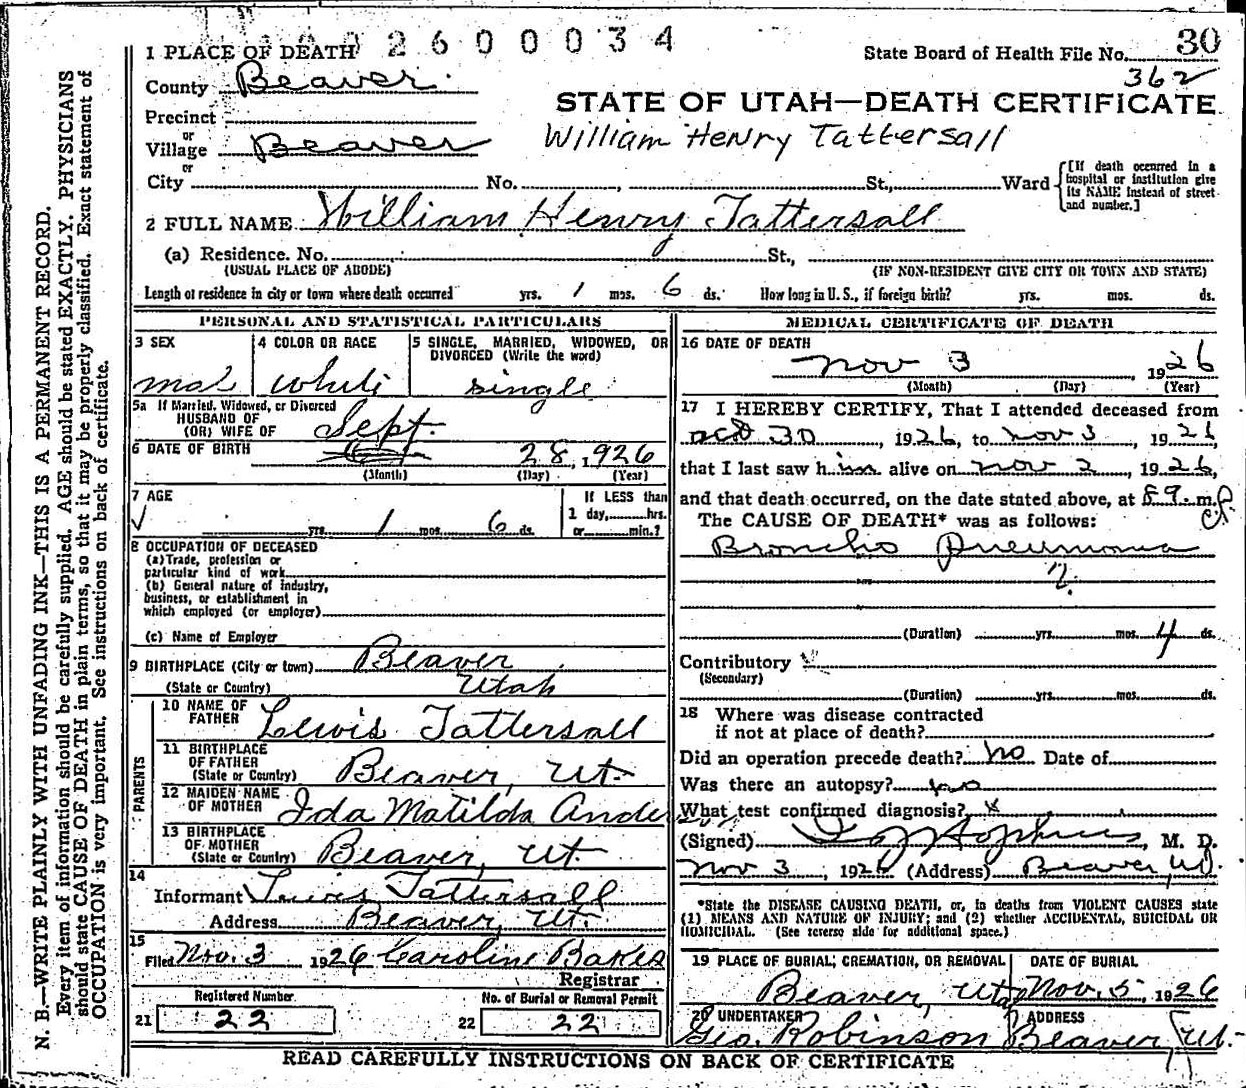 2600034
1 PLACE OF DEATH
State Board of Health File No. 30
362
County Beaver
STATE OF UTAH—DEATH CERTIFICATE
Precinct
William Henry Tattersall
or
Village Beaver
or
City No. , St., Ward
[If death occurred in a hospital or institution give its NAME instead of street and number.]
2 FULL NAME William Henry Tattersall
(a) Residence. No. St.,
(USUAL PLACE OF ABODE) (IF NON-RESIDENT GIVE CITY OR TOWN AND STATE)
Length of residence in city or town where death occurred yrs. 1 mos. 6 ds. How long in U. S., if foreign birth? yrs. mos. ds.
PERSONAL AND STATISTICAL PARTICULARS
3 SEX 4 COLOR OR RACE 5 SINGLE, MARRIED, WIDOWED, OR DIVORCED (Write the word)
mal white single
5a If Married, Widowed, or Divorced
HUSBAND OF
(OR) WIFE OF
Sept.
6 DATE OF BIRTH 28, 1926
(Month) (Day) (Year)
7 AGE If LESS than
yrs. 1 mos. 6 ds. 1 day, hrs.
or min.?
8 OCCUPATION OF DECEASED
(a) Trade, profession or
particular kind of work
(b) General nature of industry,
business, or establishment in
which employed (or employer)
(c) Name of Employer
9 BIRTHPLACE (City or town) Beaver
(State or Country) Utah
PARENTS
10 NAME OF FATHER Lewis Tattersall
11 BIRTHPLACE OF FATHER (State or Country) Beaver, Ut.
12 MAIDEN NAME OF MOTHER Ida Matilda Ande
13 BIRTHPLACE OF MOTHER (State or Country) Beaver, Ut.
14
Informant Lewis Tattersall
Address Beaver, Ut.
15
Filed Nov. 3 1926 Caroline Baker
Registrar
Registered Number No. of Burial or Removal Permit
21 22 22 22
MEDICAL CERTIFICATE OF DEATH
16 DATE OF DEATH
Nov 3, 1926
(Month) (Day) (Year)
17 I HEREBY CERTIFY, That I attended deceased from
Oct 30, 1926, to Nov 3, 1926
that I last saw him alive on Nov 2, 1926,
and that death occurred, on the date stated above, at m.
The CAUSE OF DEATH* was as follows:
Broncho Pneumonia
(Duration) yrs. mos. 4 ds.
Contributory
(Secondary)
(Duration) yrs. mos. ds.
18 Where was disease contracted
if not at place of death?
Did an operation precede death? No Date of
Was there an autopsy? no
What test confirmed diagnosis?
(Signed) Hopkins, M. D.
Nov 3, 1926 (Address) Beaver, Ut.
*State the DISEASE CAUSING DEATH, or, in deaths from VIOLENT CAUSES state
(1) MEANS AND NATURE OF INJURY; and (2) whether ACCIDENTAL, SUICIDAL OR
HOMICIDAL. (See reverse side for additional space.)
19 PLACE OF BURIAL, CREMATION, OR REMOVAL DATE OF BURIAL
Beaver, Utah Nov. 5, 1926
20 UNDERTAKER ADDRESS
Geo. Robinson Beaver, Ut.
READ CAREFULLY INSTRUCTIONS ON BACK OF CERTIFICATE
N. B.—WRITE PLAINLY WITH UNFADING INK—THIS IS A PERMANENT RECORD.
Every item of information should be carefully supplied. AGE should be stated EXACTLY. PHYSICIANS
should state CAUSE OF DEATH in plain terms, so that it may be properly classified. Exact statement of
OCCUPATION is very important. See instructions on back of certificate.